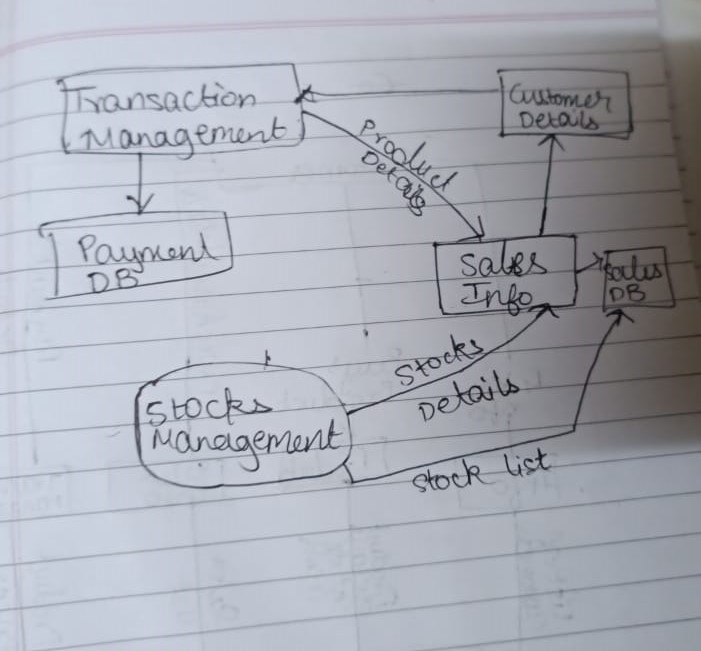 Transaction
Management
Customer
Details
Product
Details
Payment
DB
Sales
Info
Sales
DB
Stocks
Details
Stocks
Management
Stock list